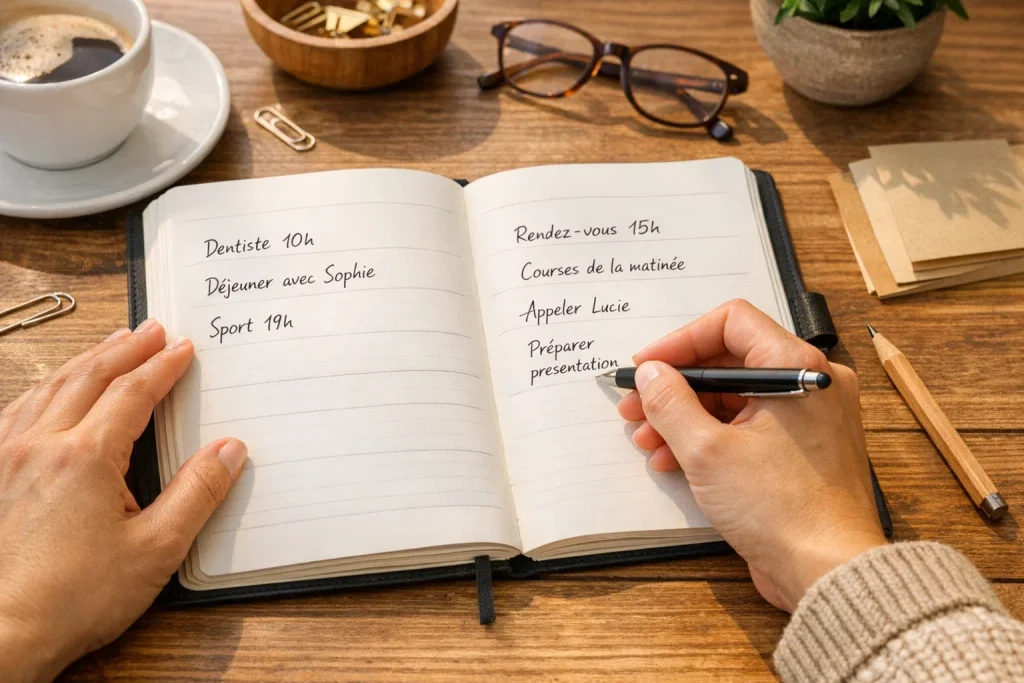 Dentiste 10h
Déjeuner avec Sophie
Sport 19h
Rendez-vous 15h
Courses de la matinée
Appeler Lucie
Préparer
presentation